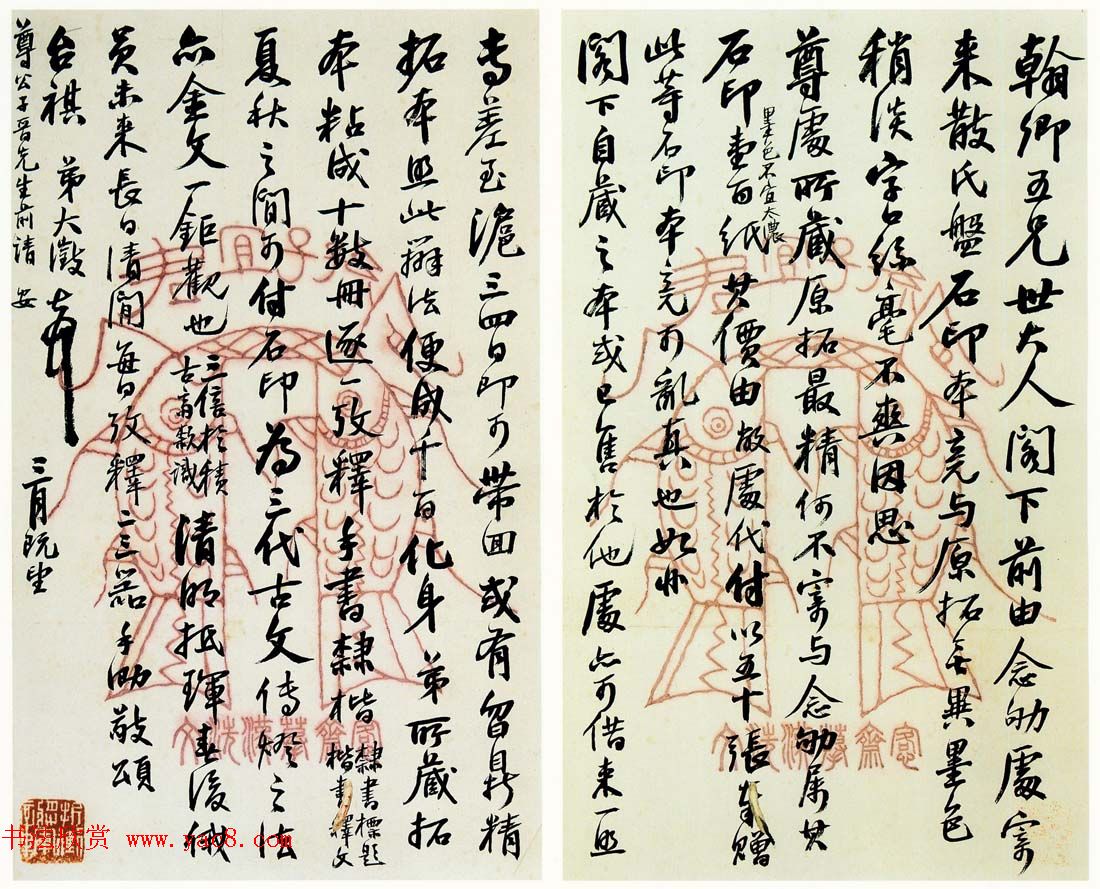 翰卿五兄世大人閣下前由念劬處寄
来散氏盤石印本竟与原拓無異墨色
稍淡字口絲毫不爽因思
尊處所蔵原拓最精何不寄与念劬属其
石印壹百紙墨色不宜太濃其價由敝處代付以五十張奉贈
此等石印本竟可亂真也如
閣下自蔵之本或已售於他處亦可借来一照
愙齋摹漢洗文
专差至滬三四日即可帶回或有曶鼎精
拓本照此辦法便成千百化身弟所蔵拓
本粘成十數冊逐一攷釋手書隸楷隸書標題楷書釋文
夏秋之閒可付石印為三代古文傳燈之法
亦金文一鉅觀也三倍於積古斎款識清明抵琿春後俄
員未来長日清閒每日攷釋二三器手泐敬頌
台祺 弟大澂頓首
三月既望
尊公子晋先生前請 安
愙齋摹漢洗文
书画欣赏 www.yac8.com